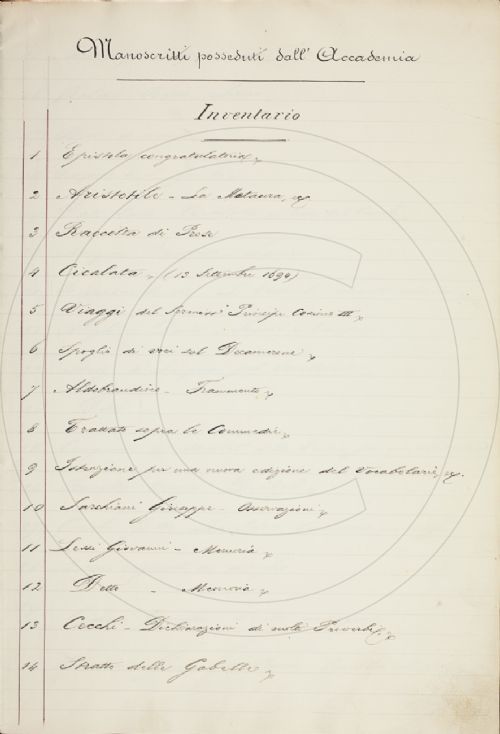 Manoscritti posseduti dall' Accademia
Inventario
1 Epistola congratulatoria
2 Aristotile - La Metaura,
3 Raccolta di Prose
4 Cicalata, (13 Settembre 1694)
5 Viaggi del Sermoss° Principe Cosimo III
6 Spoglio di voci sul Decamerone
7 Aldobrandino - Frammento
8 Trattato sopra le Commedie
9 Istruzione per una nuova edizione del Vocabolario,
10 Sarchiani Giuseppe - Osservazioni
11 Lessi Giovanni - Memoria
12 Detto - Memoria
13 Cecchi - Dichiarazioni di molti Proverbi,
14 Stratto delle Gabelle